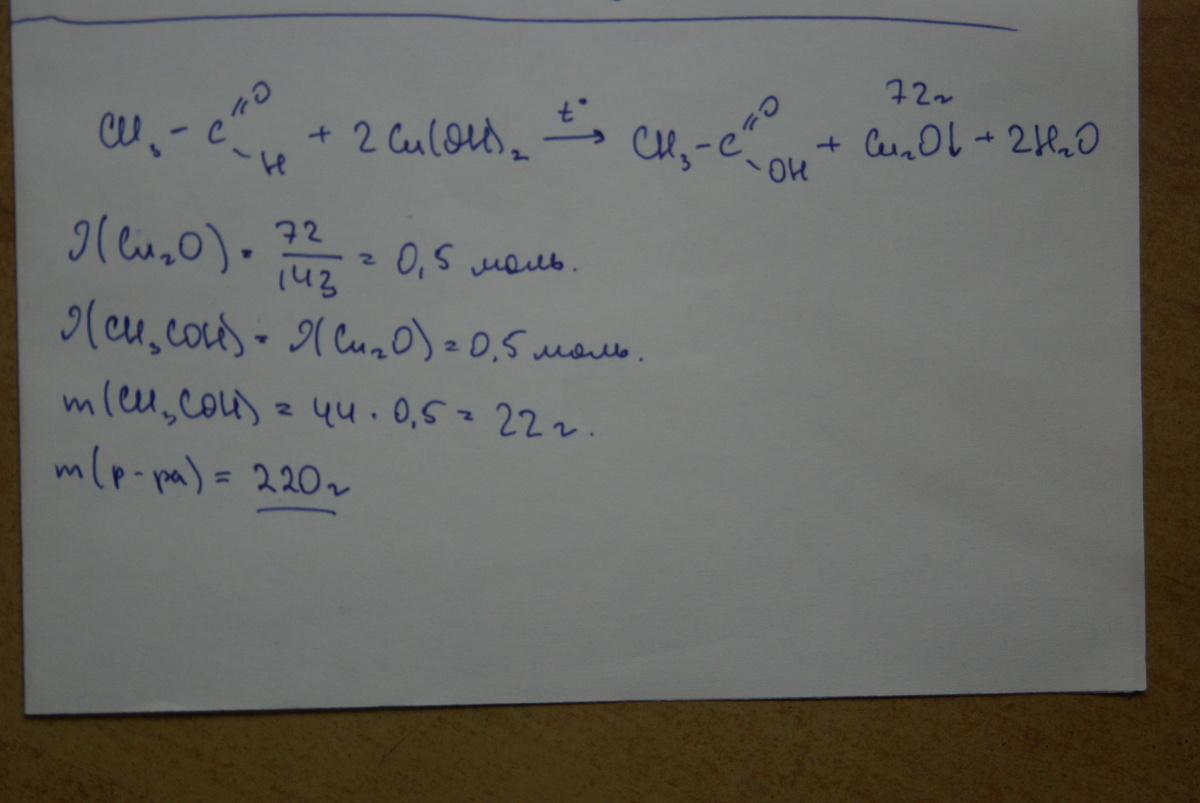 72г
CH₃-C(=O)-H + 2Cu(OH)₂ —t°→ CH₃-C(=O)-OH + Cu₂O↓ + 2H₂O
ν(Cu₂O) = 72/143 = 0,5 моль.
ν(CH₃COH) = ν(Cu₂O) = 0,5 моль.
m(CH₃COH) = 44 · 0,5 = 22г.
m(р-ра) = 220г